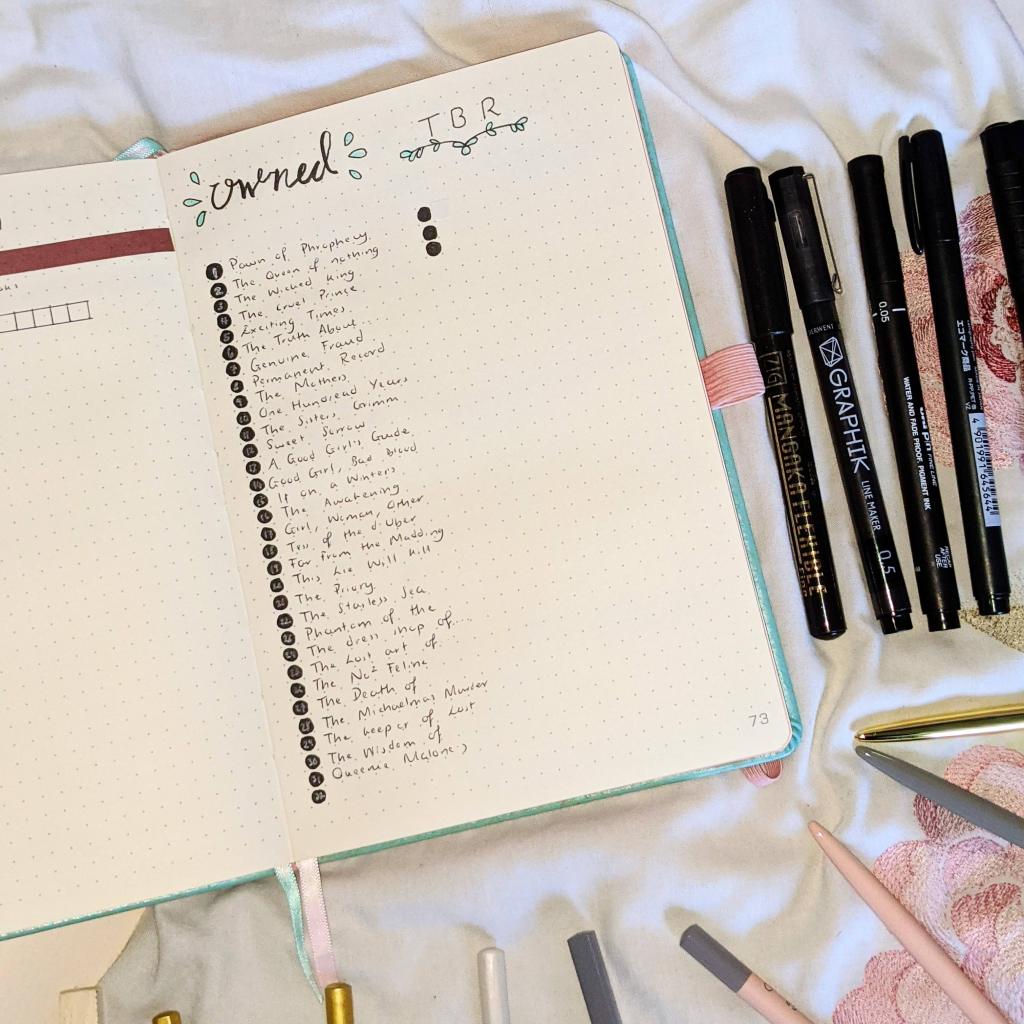 owned
TBR
1 Pawn of Phrophecy
2 The Queen of nothing
3 The Wicked king
4 The Cruel Prince
5 Exciting Times
6 The Truth About...
7 Genuine Fraud
8 Permanent Record
9 The Mothers
10 One Hundread Years
11 The Sisters Grimm
12 Sweet Sorrow
13 A Good Girl's Guide
14 Good Girl, Bad blood
15 If on a Winters
16 The Awakening
17 Girl, Woman, Other
18 Tess of the d'Uber
19 Far from the Madding
20 This Lie Will Kill
21 The Priory
22 The Starless Sea
23 Phantom of the
24 The dress shop of...
25 The Lost art of
26 The No2 Feline
27 The Death of
28 The Michaelmas Murder
29 The keeper of Lost
30 The Wisdom of
31 Queenie Malone's
32
73
ZIG MANGAKA FLEXIBLE
DERWENT GRAPHIK LINE MAKER 0.5
0.05
uni pin FINE LINE
WATER AND FADE PROOF, PIGMENT INK
RECAP AFTER USE
エコマーク商品
4 901991645644